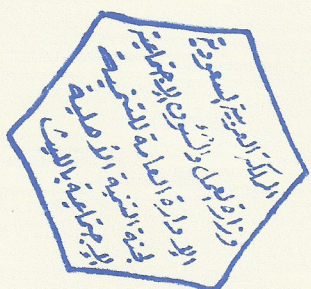 المملكة العربية السعودية
وزارة العمل والشئون الاجتماعية
الإدارة العامة للتنمية
لجنة التنمية الأهلية
الاجتماعية بالليث